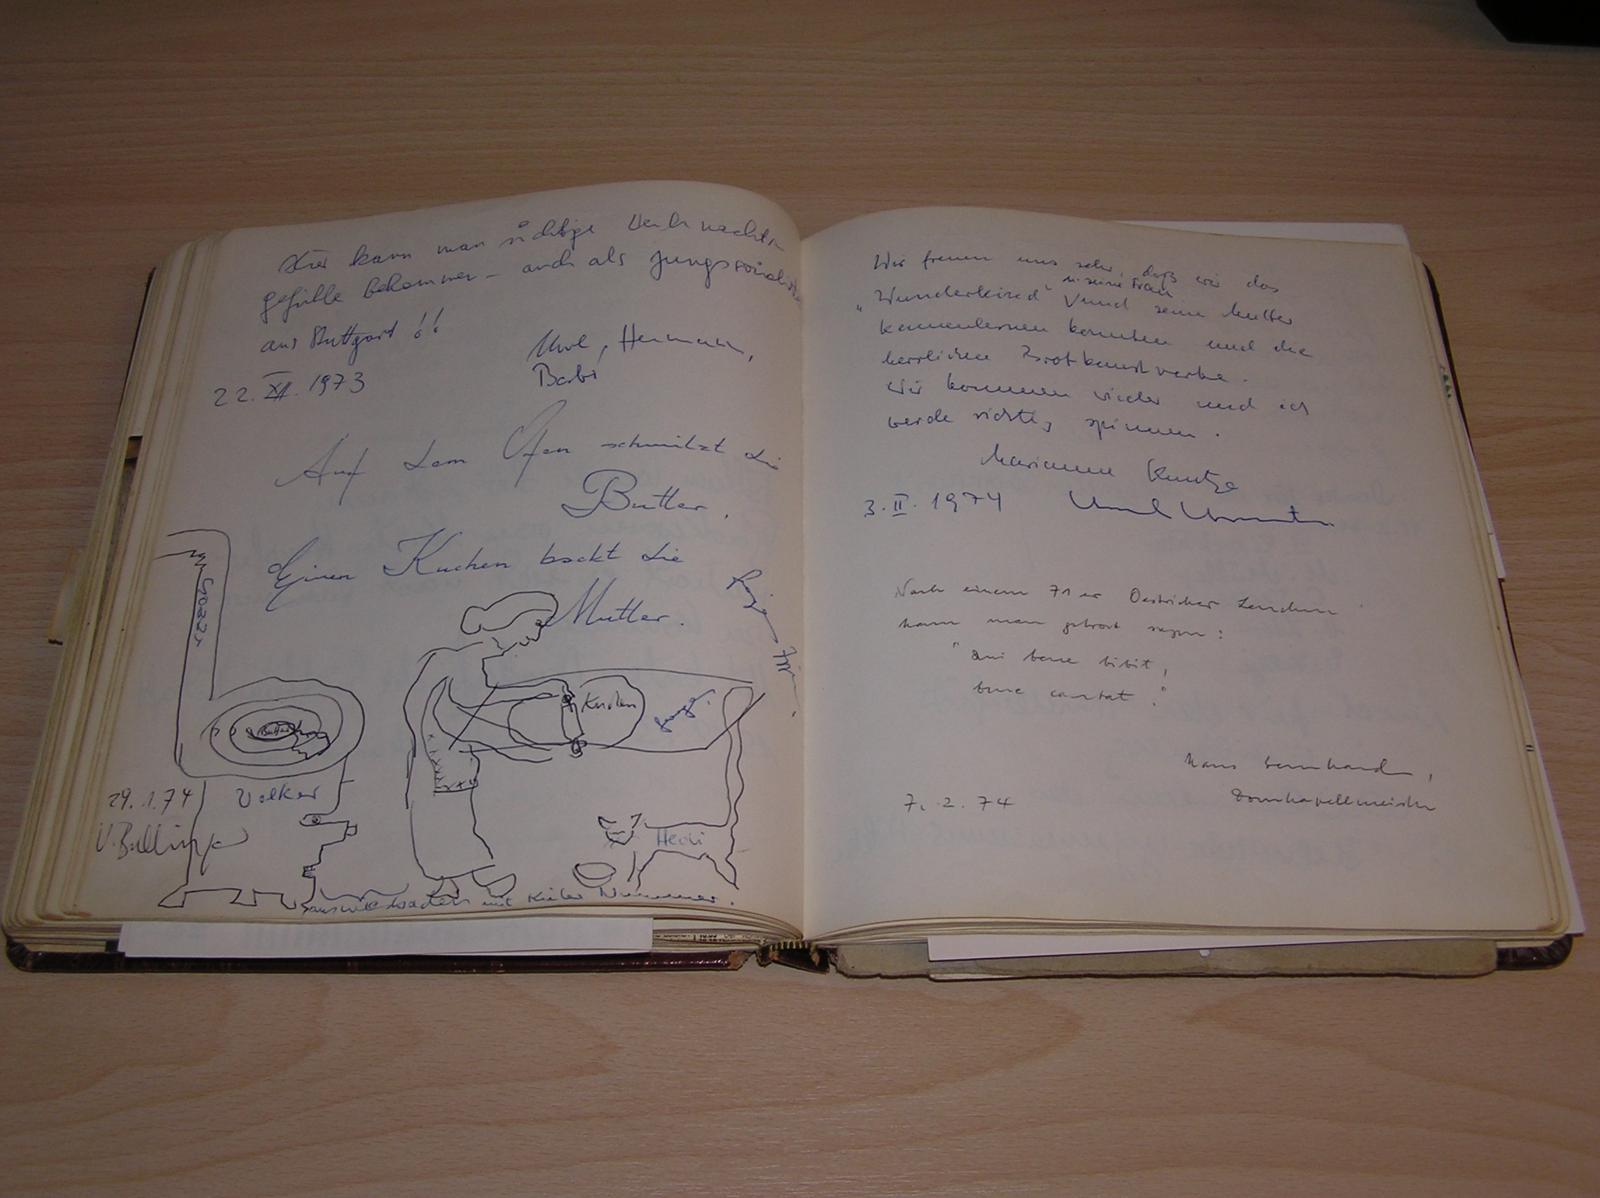 Hier kann man richtige Weihnachts
gefühle bekommen – auch als Jungsozialisten
aus Stuttgart !!
Hermann,
Barbi
22. XII. 1973
Auf dem Ofen schmilzt die
Butter.
Einen Kuchen backt die
Mutter.
Butter
Kuchen
Volker
29.1.74
Hedi
mit Kieler Nummer.
Wir freuen uns sehr, daß wir das
"Wunderkind" u. seine Frau und seine Mutter
kennenlernen konnten und die
herrlichen Brotkunstwerke.
Wir kommen wieder und ich
werde richtig spinnen.
Marianne Kuntze
3. II. 1974
Nach einem 71er Oestricher Lenchen
kann man getrost sagen:
"Qui bene bibit,
bene cantat."
Hans Bernhard,
Domkapellmeister
7. 2. 74